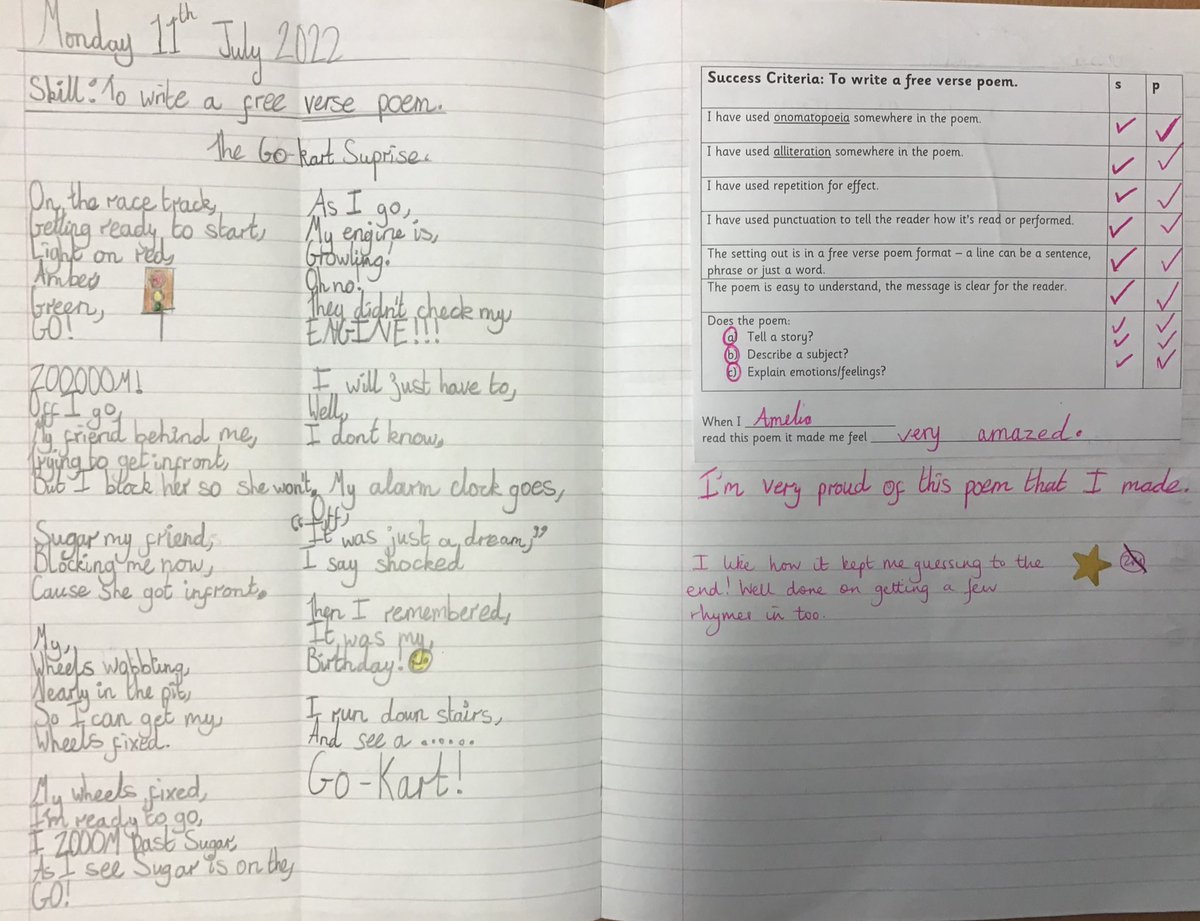 Monday 11th July 2022
Skill: To write a free verse poem.
The Go-kart Suprise.
On the race track,
Getting ready to start,
Light on red,
Amber
Green,
GO!
ZOOOOOM!
Off I go,
My friend behind me,
Trying to get infront,
But I block her so she won't.
Sugar my friend,
Blocking me now,
Cause she got infront.
My,
Wheels wabbling,
Nearly in the pit,
So I can get my,
Wheels fixed.
My wheels fixed,
I'm ready to go,
I ZOOOM past Sugar,
As I see Sugar is on the,
GO!
As I go,
My engine is,
Growling!
Oh no!
They didn't check my
ENGINE!!!
I will just have to,
Well,
I dont know,
My alarm clock goes,
Off,
"It was just a dream,"
I say shocked
Then I remembered,
It was my,
Birthday!
I run down stairs,
And see a ......
Go-Kart!
Success Criteria: To write a free verse poem. s p
I have used onomatopoeia somewhere in the poem.
I have used alliteration somewhere in the poem.
I have used repetition for effect.
I have used punctuation to tell the reader how it's read or performed.
The setting out is in a free verse poem format – a line can be a sentence,
phrase or just a word.
The poem is easy to understand, the message is clear for the reader.
Does the poem:
a) Tell a story?
b) Describe a subject?
c) Explain emotions/feelings?
When I Amelia
read this poem it made me feel very amazed.
I'm very proud of this poem that I made.
I like how it kept me guessing to the
end! Well done on getting a few
rhymes in too.